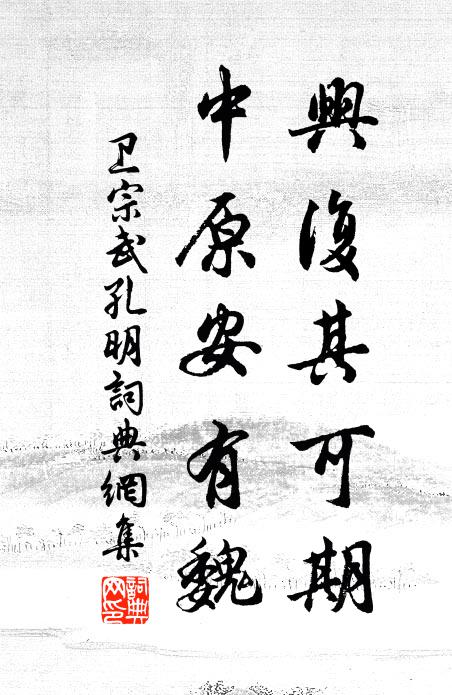 興復其可期
中原安有魏
卫宗武孔明詞典網集
詞典
网印